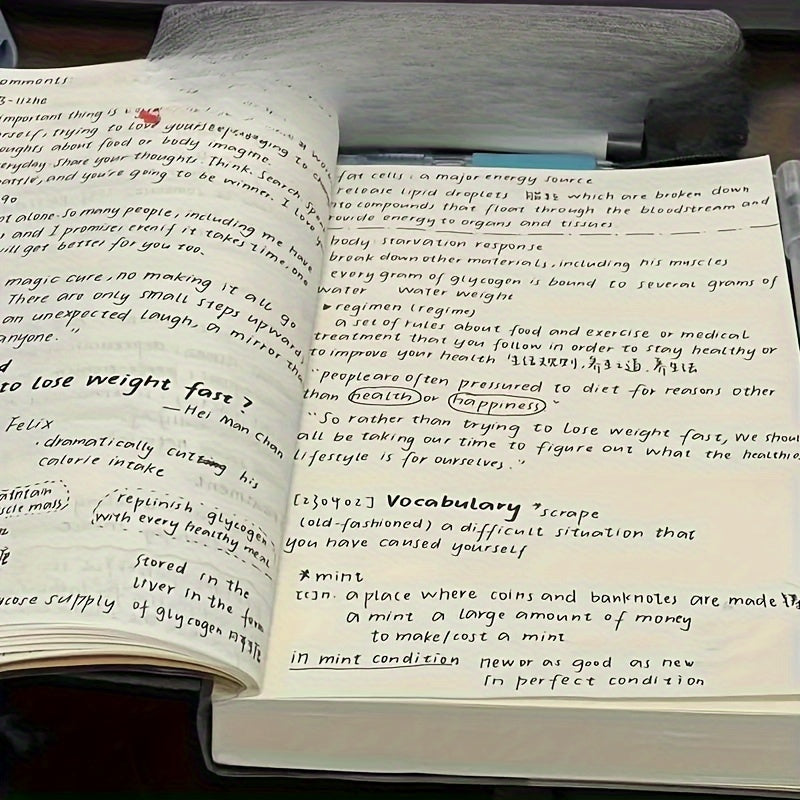 omments
important thing is
rself, trying to love yourself
oughts about food or body imagine.
everyday. Share your thoughts. Think. Search.
battle, and you're going to be winner. I love
go
ot alone. So many people, including me have
s and I promise, even if it takes time, one
will get better for you too.
magic cure, no making it all go
There are only small steps upward,
an unexpected laugh, a mirror tha
anyone."
d
to lose weight fast?
—Hei Man Chan
Felix
·dramatically cutting his
calorie intake
aintain
scle mass)
replinish glycogen
with every healthy meal
Stored in the
liver in the form
ycose supply of glycogen
fat cells: a major energy source
release lipid droplets which are broken down
into compounds that float through the bloodstream and
rovide energy to organs and tissues.
body starvation response
break down other materials, including his muscles
every gram of glycogen is bound to several grams of
water water weight
▸regimen (regime)
a set of rules about food and exercise or medical
treatment that you follow in order to stay healthy or
to improve your health 生活规则,养生之道,养生法
"people are often pressured to diet for reasons other
than health or happiness"
"So rather than trying to lose weight fast, we shoul
all be taking our time to figure out what the healthie
lifestyle is for ourselves."
[230402] Vocabulary *scrape
(old-fashioned) a difficult situation that
you have caused yourself
*mint
[c]n. a place where coins and banknotes are made
a mint a large amount of money
to make/cost a mint
in mint condition new or as good as new
In perfect condition